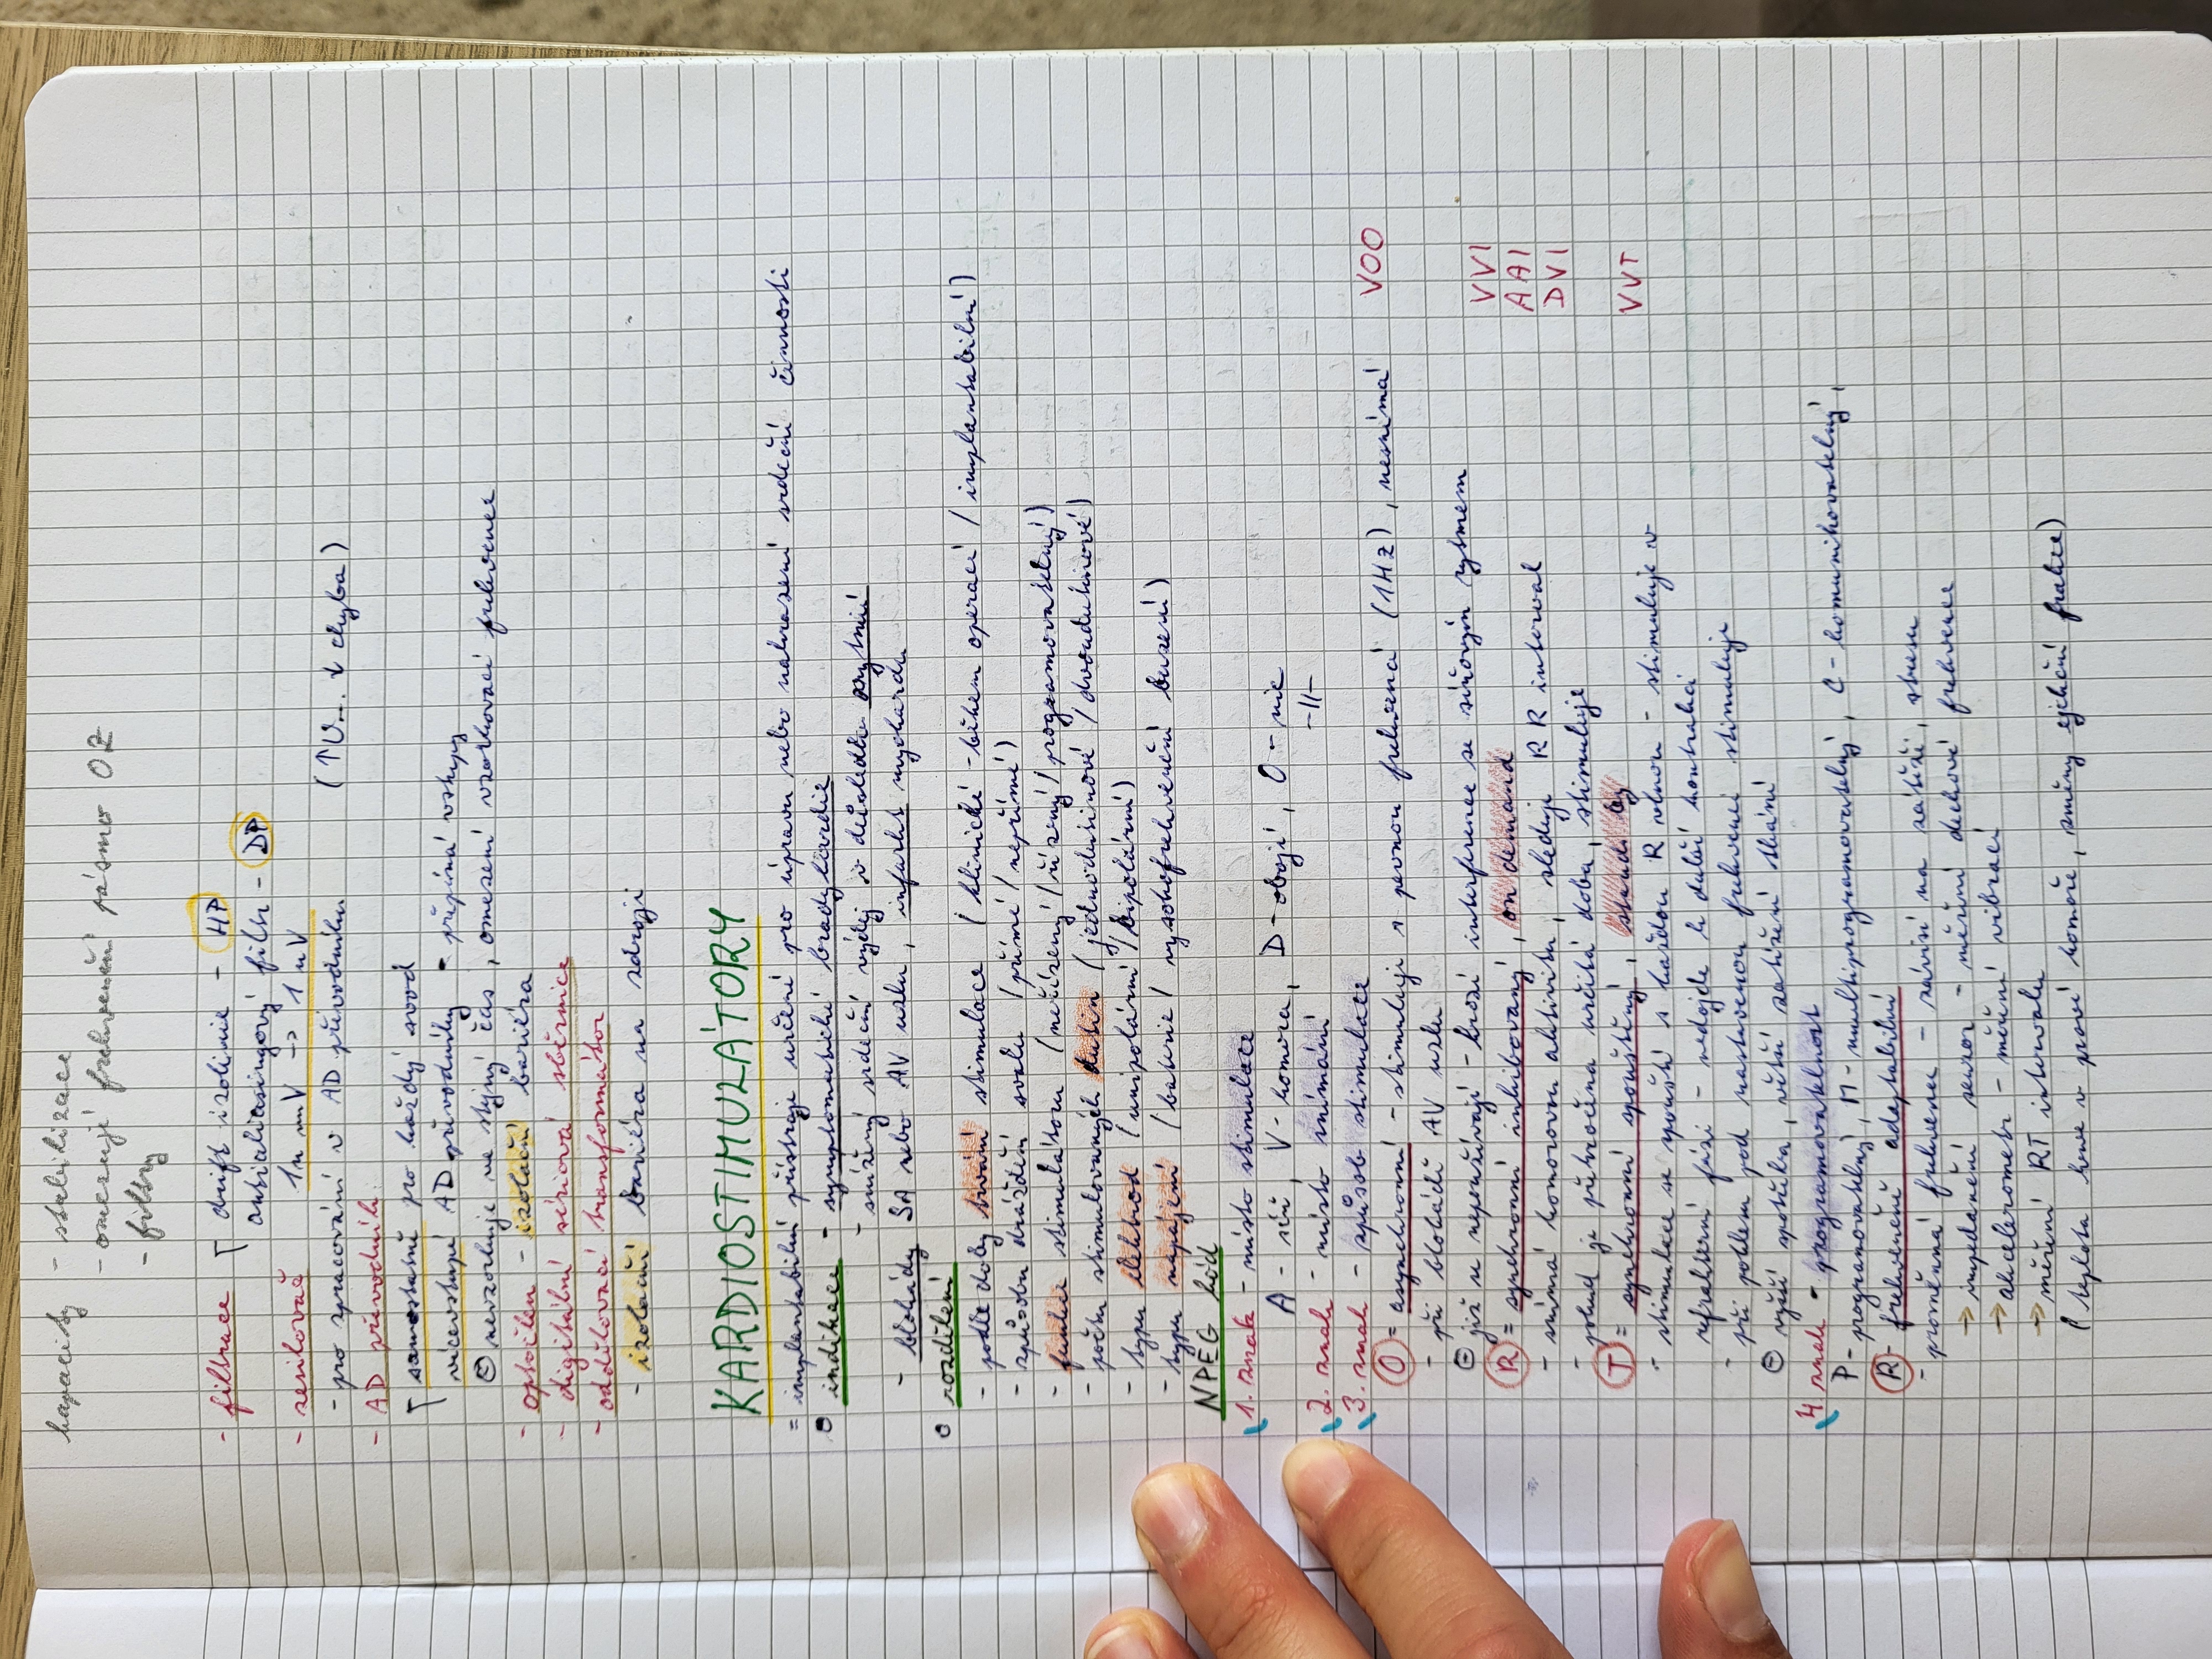 kapacity - stabilizace
- omezují frekvenční pásmo OZ
- filtry
- filtrace drift izolinie - HP
antialiasingový filtr - DP
- zesilovač 1u mV -> 1 u V
- pro zpracování v AD převodníku (↑U... ↓ chyba)
- AD převodník
samostatně pro každý svod
vícevstupé AD převodníky - přepíná vstupy
⊖ nevzorkuje ve stejný čas, omezení vzorkovací frekvence
- optočlen - izolační bariéra
- digitální sériová sběrnice
- oddělovací transformátor
- izolační bariéra na zdroji
KARDIOSTIMULÁTORY
= implantabilní přístroje určené pro úpravu nebo nahrazení srdeční činnosti
o indikace - symptomatické bradykardie
- snížený srdeční výdej v důsledku arytmií
- blokády SA nebo AV uzlu, infarkt myokardu
o rozdělení
- podle doby trvání stimulace (klinické - během operací / implantabilní)
- způsobu dráždění svalu (přímé / nepřímé)
- funkce stimulátoru (neřízený / řízený / programovatelný)
- počtu stimulovaných dutin (jednodutinové / dvoudutinové)
- typu elektrod (unipolární / bipolární)
- typu napájení (baterie / vysokofrekvenční buzení)
NPEG kód
1. znak - místo stimulace
A - síň, V - komora, D - obojí, O - nic
2. znak - místo snímání -//-
3. znak - způsob stimulace
O = asynchronní - stimuluje s pevnou frekvencí (1Hz), nesnímá VOO
- při blokádě AV uzlu
⊖ již se nepoužívají - hrozí interference se síňovým rytmem
R = synchronní inhibovaný, on demand VVI
- snímá komorovou aktivitu, sleduje RR interval AAI
- pokud je překročena určitá doba, stimuluje DVI
T = synchronní spouštěný, stand by VVT
- stimulace se spouští s každou R vlnou - stimuluje v
refrakterní fázi - nedojde k další kontrakci
- při poklesu pod nastavenou frekvenci stimuluje
⊖ vyšší spotřeba, větší zatížení tkání
4 znak - programovatelnost
P - programovatelný, M - multiprogramovatelný, C - komunikovatelný,
R - frekvenčně adaptabilní
- proměnná frekvence - závisí na zátěži, stresu
-> impedanční senzor - měření dechové frekvence
-> akcelerometr - měření vibrací
-> měření RT intervalu
(teplota krve v pravé komoře, změny ejekční frakce)